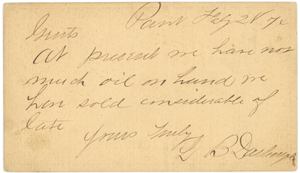 Feb 28
Gents
At present we have not
much oil on hand we
hav sold considerable of
late
Yours Truly
B